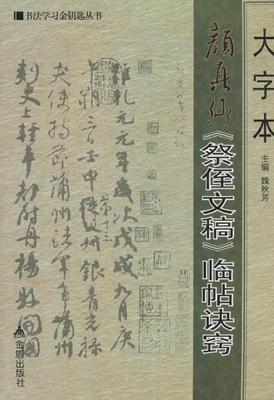 书法学习金钥匙丛书
大字本
颜真卿《祭侄文稿》临帖诀窍
主编 魏秋芳
维乾元元年岁次戊戌九月庚
午朔三日壬申第十三
叔银青光禄
夫使持节蒲州诸军事蒲州
刺史上轻车都尉丹杨县开国
金盾出版社